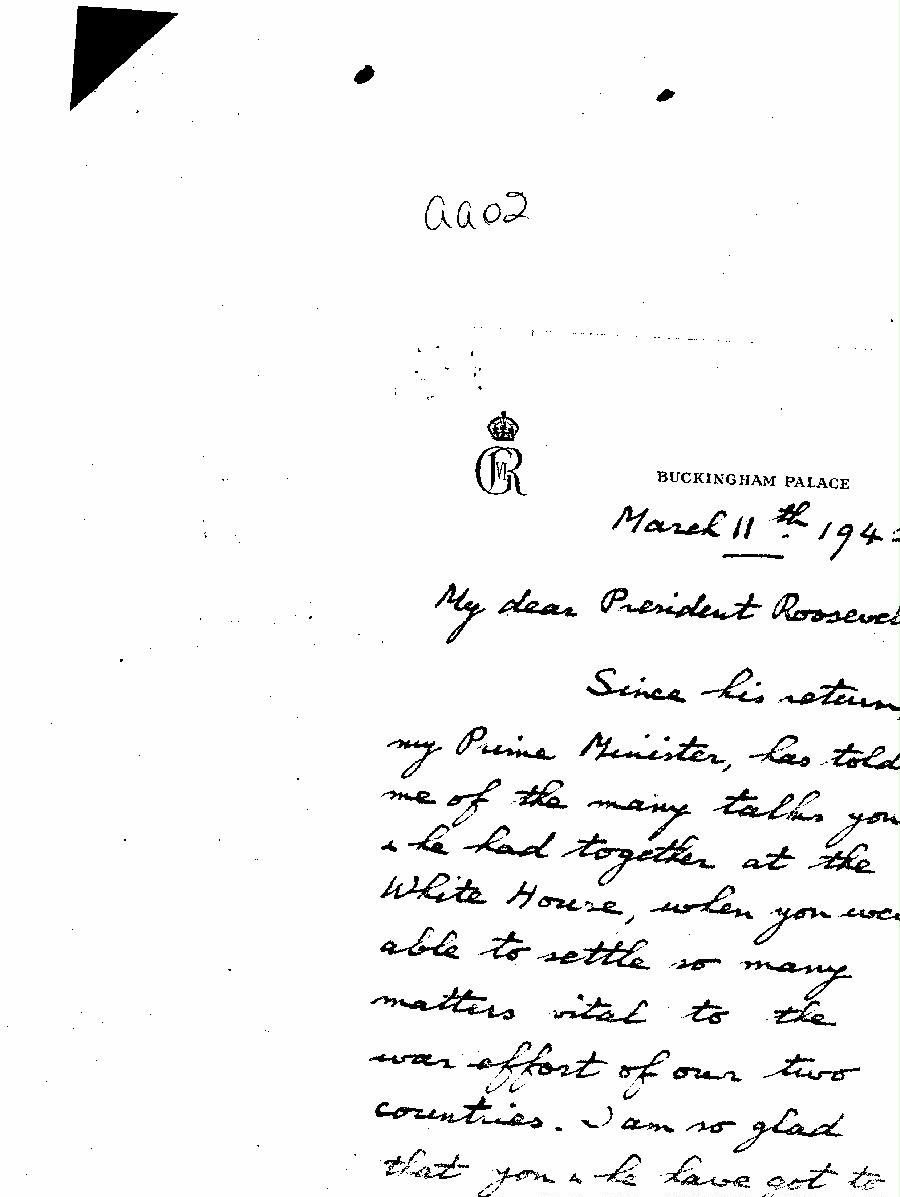 aa02
GVIR
BUCKINGHAM PALACE
March 11th 194
My dear President Roosevel
Since his return,
my Prime Minister, has told
me of the many talks you
& he had together at the
White House, when you wer
able to settle so many
matters vital to the
war effort of our two
countries. I am so glad
that you & he have got to